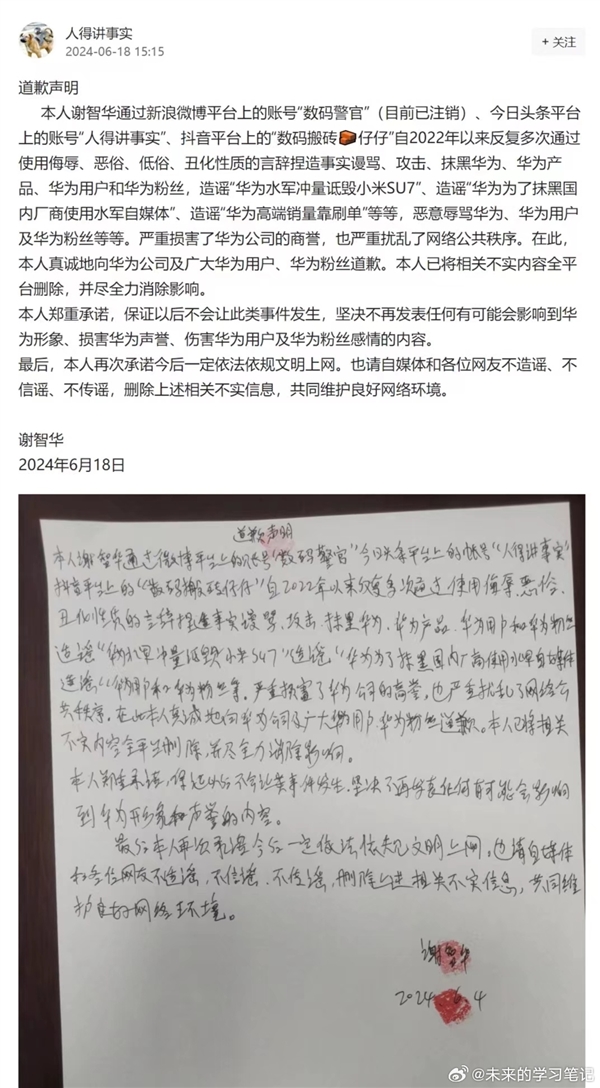 人得讲事实
2024-06-18 15:15
+ 关注
道歉声明
本人谢智华通过新浪微博平台上的账号“数码警官”（目前已注销）、今日头条平台
上的账号“人得讲事实”、抖音平台上的“数码搬砖🧱仔仔”自2022年以来反复多次通过
使用侮辱、恶俗、低俗、丑化性质的言辞捏造事实谩骂、攻击、抹黑华为、华为产
品、华为用户和华为粉丝，造谣“华为水军冲量诋毁小米SU7”、造谣“华为为了抹黑国
内厂商使用水军自媒体”、造谣“华为高端销量靠刷单”等等，恶意辱骂华为、华为用户
及华为粉丝等等。严重损害了华为公司的商誉，也严重扰乱了网络公共秩序。在此，
本人真诚地向华为公司及广大华为用户、华为粉丝道歉。本人已将相关不实内容全平
台删除，并尽全力消除影响。
本人郑重承诺，保证以后不会让此类事件发生，坚决不再发表任何有可能会影响到华
为形象、损害华为声誉、伤害华为用户及华为粉丝感情的内容。
最后，本人再次承诺今后一定依法依规文明上网。也请自媒体和各位网友不造谣、不
信谣、不传谣，删除上述相关不实信息，共同维护良好网络环境。
谢智华
2024年6月18日
道歉声明
本人谢智华通过微博平台上的账号“数码警官”今日头条平台上的帐号“人得讲事实”
抖音平台上的“数码搬砖仔仔”自2022年以来反复多次通过使用侮辱恶俗、
丑化性质的言辞捏造事实谩骂、攻击、抹黑华为、华为产品、华为用户和华为粉丝
造谣“华为水军冲量诋毁小米SU7”造谣“华为为了抹黑国内厂商使用水军自媒体
造谣“华为用户和华为粉丝等，严重损害了华为公司的商誉，也严重扰乱了网络公
共秩序，在此本人真诚地向华为公司及广大华为用户、华为粉丝道歉。本人已将相关
不实内容全平台删除，并尽全力消除影响。
本人郑重承诺，保证以后不会让类事件发生，坚决不再发表任何有可能会影响
到华为形象和声誉的内容。
最后本人再次承诺今后一定依法依规文明上网，也请自媒体
和各位网友不造谣，不信谣、不传谣，删除上述相关不实信息，共同维
护良好网络环境。
谢智华
2024 6 4
@未来的学习笔记